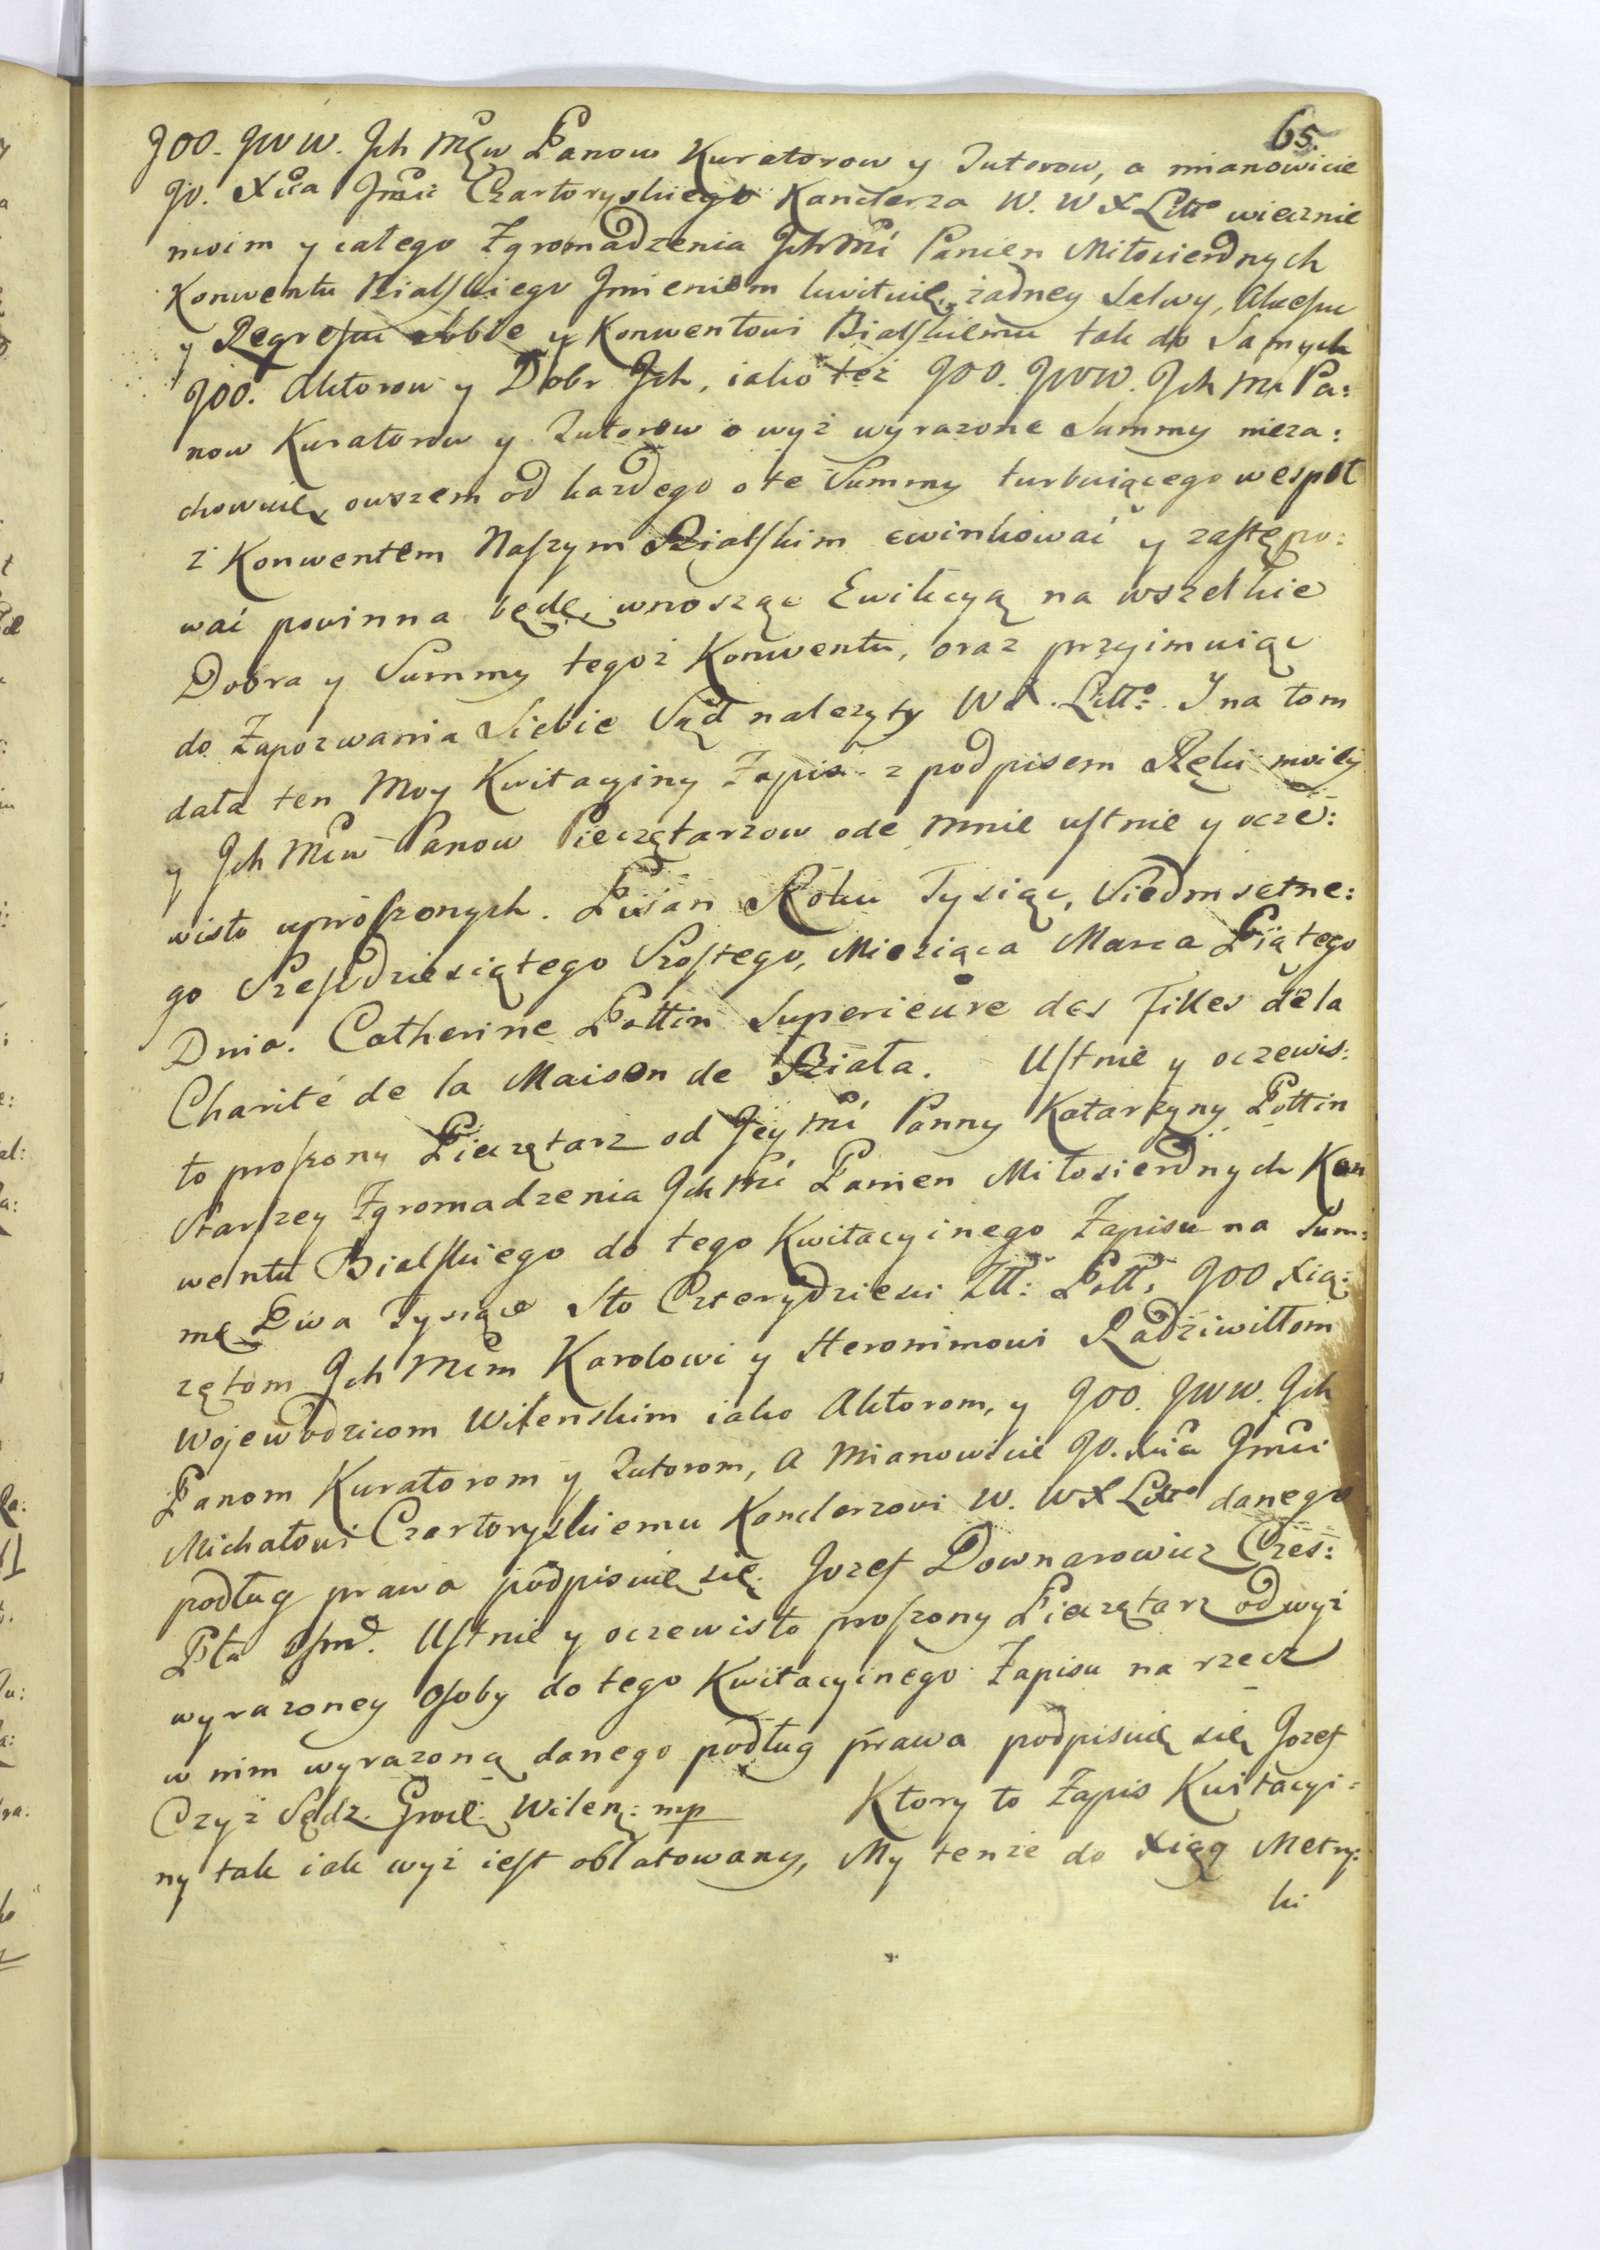 65.
JOO. JWW. Jch Mċw Panow Kuratorow y Tutorow, a mianowicie
JO. Xcia Jmci Czartoryskiego Kanclerza W. W X Litto wiecznie
moim y całego Zgromadzenia Jch Mci Panien Miłosierdnych
Konwentu Bialskiego Jmieniem kwituię, żadney Salwy, Akcessu
y Regressu sobie y Konwentowi Bialskiemu tak do Samych
JOO. Aktorow y Dobr Jch, iako też JOO. JWW. Jch Mci Pa:
now Kuratorow y Tutorow o wyż wyrażone Summy nieza:
chowuię, owszem od każdego o te Summy turbuiącego wespoł
z Konwentem Naszym Bialskim ewinkować y zastępo:
wać powinna będę, wnosząc Ewikcyą na wszelkie
Dobra y Summy tegoż Konwentu, oraz przyimuiąc
do Zapozwania Siebie Sąd należyty W X. Litto: Y na tom
dała ten Moy Kwitacyiny Zapis z podpisem Ręki moiey
y Jch Mciw Panow Pieczętarzow ode mnie ustnie y oczé:
wisto uproszonych. Pisan Roku Tysiąc, Siedmsetne:
go Szesdziesiątego Szostego, Miesiąca Marca Piątego
Dnia. Catherine Pottin Superieure des Filles dela
Charité de la Maison de Biała. Ustnie y oczewis:
to proszony Pieczętarz od Jey Mci Panny Katarzyny Pottin
Starszey Zgromadzenia Jch Mci Panien Miłosierdnych Kon
wentu Bialskiego do tego Kwitacyinego Zapisu na Sum:
mę Dwa Tysiące Sto Czterydzieści Złł: Poll: JOO Xią:
zętom Jch Mcm Karolowi y Heronimowi Radziwiłłom
Wojewodzicom Wilenskim iako Aktorom, y JOO. JWW. Jch
Panom Kuratorom y Tutorom, A Mianowicie JO. Xcia Jmci
Michałowi Czartoryskiemu Kanclerzowi W. W X Litto danego
podług prawa podpisuię się. Jozef Downarowicz Czes:
Pta Osmo. Ustnie y oczewisto proszony Pieczętarz od wyż
wyrażoney Osoby do tego Kwitacyinego Zapisu na rzecz
w nim wyrażoną danego podług prawa podpisuię się Jozef
Czyż Sędz. Grod: Wilen: mp Ktory to Zapis Kwitacyi=
ny tak iak wyż iest oblatowany, My tenże do Xiąg Metry:
ki